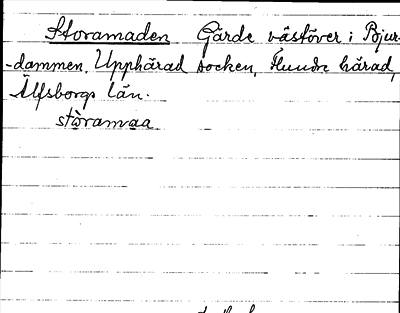 Storamaden Gärde västöver i Bjur-
-dammen. Upphärad socken, Flundre härad,
Älfsborgs län.
stòramaa